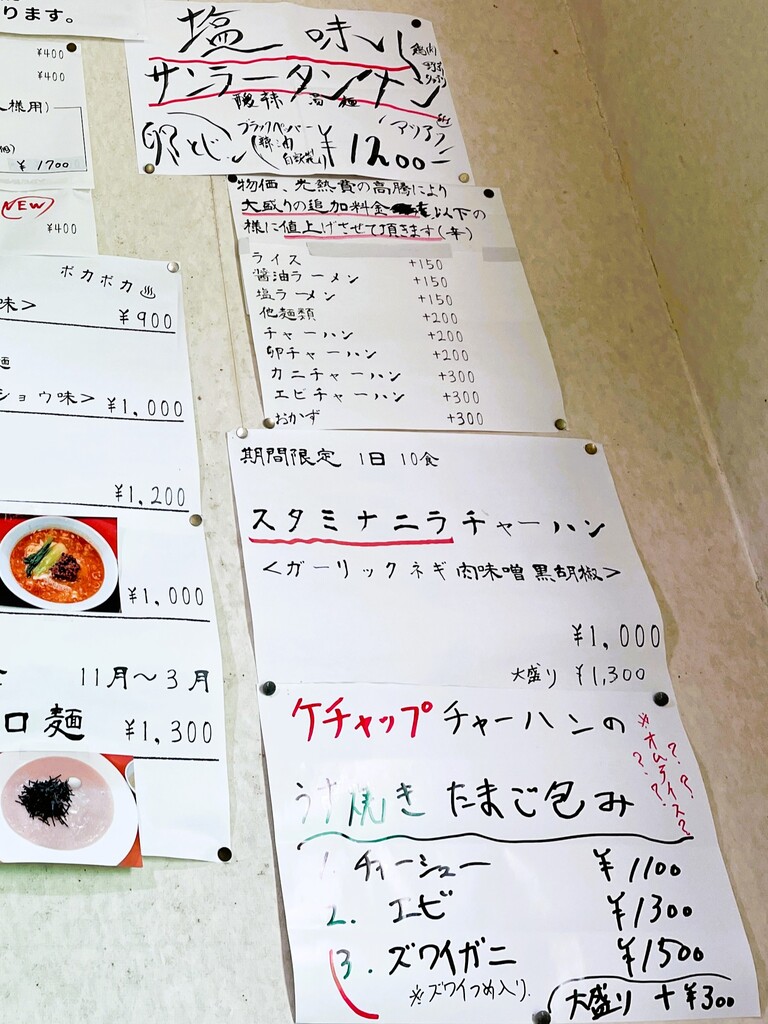 ります。
¥400
¥400
様用)
¥1700
NEW
¥400
ポカポカ♨
味> ¥900
麺
ショウ味> ¥1,000
¥1,200
¥1,000
11月～3月
麺 ¥1,300
塩味い
サンラータンナン
酸辣湯麺
卵とじ
ブラックペパー
辣油
アツアツ
¥1200
物価、光熱費の高騰により
大盛りの追加料金を以下の
様に値上げさせて頂きます(辛)
ライス +150
醤油ラーメン +150
塩ラーメン +150
他麺類 +200
チャーハン +200
卵チャーハン +200
カニチャーハン +300
エビチャーハン +300
おかず +300
期間限定 1日 10食
スタミナニラチャーハン
<ガーリックネギ肉味噌黒胡椒>
¥1,000
大盛り ¥1,300
ケチャップチャーハンの
うす焼きたまご包み
※オムライス?
? ? ? ?
1. チャーシュー ¥1100
2. エビ ¥1300
3. ズワイガニ ¥1500
※ズワイつめ入り.
大盛り +¥300